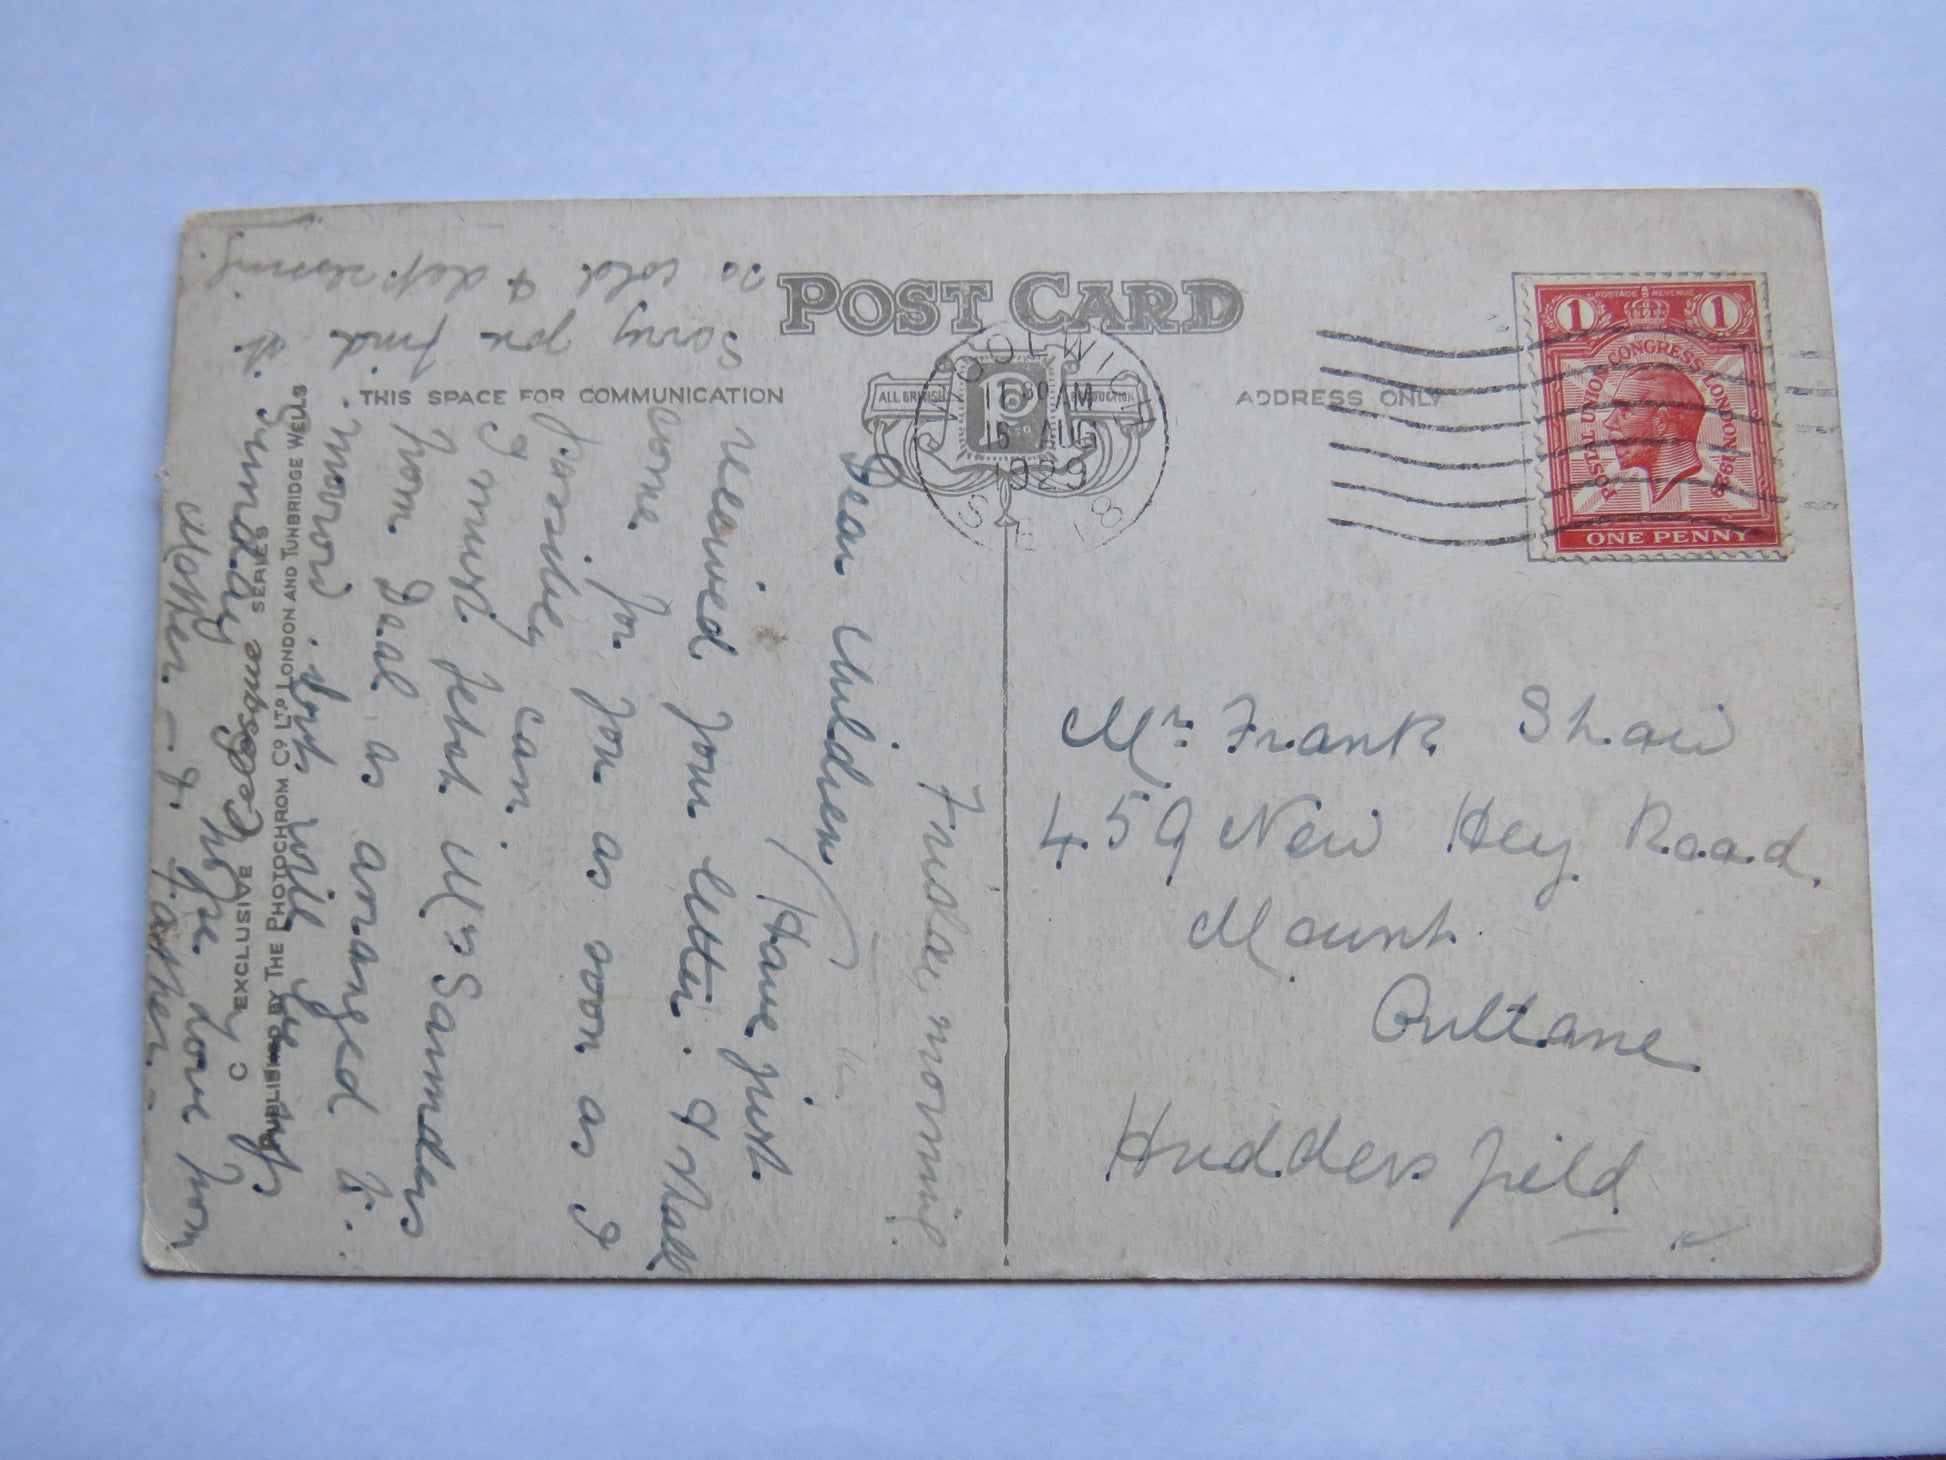 POST CARD
THIS SPACE FOR COMMUNICATION
ADDRESS ONLY
ALL BRITISH
PRODUCTION
WOOLWICH
11 30 AM
16 AUG
1929
S.E.18
1 POSTAGE REVENUE 1
POSTAL UNION CONGRESS LONDON 1929
ONE PENNY
Friday morning.
Dear Children
Have just
received your letter. I shall
come for you as soon as I
possibly can.
I must fetch Mrs Saunders
from Deal as arranged to-
morrow. but will be up
Sunday I hope. Love from
Mother & Father.
Sorry you find it
so cold & depressing.
C EXCLUSIVE Celesque SERIES
PUBLISHED BY THE PHOTOCHROM CO LTD LONDON AND TUNBRIDGE WELLS
Mr Frank Shaw
459 New Hey Road
Mount
Outlane
Huddersfield